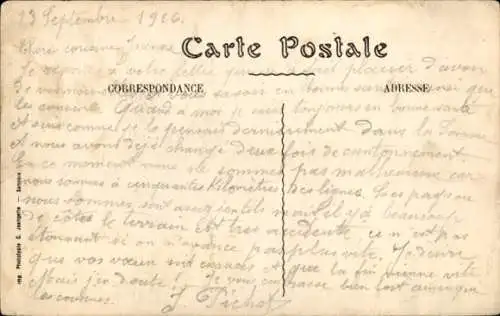 13 Septembre 1916.
Chère cousine Jeanne
Carte Postale
Je réponds à votre lettre qui m'a fait plaisir d'avoir
CORRESPONDANCE
ADRESSE
de vos nouvelles et de vous savoir en bonne santé ainsi que
les cousines. Quand à moi je suis toujours en bonne santé
nous sommes dernièrement dans la Somme
nous avons déjà changé deux fois de cantonnement
En ce moment nous ne sommes pas malheureux car
nous sommes à cinquante kilomètres des lignes. Les pays ou
nous sommes sont assez gentils mais il y a beaucoup
de côtes le terrain est très accidenté, ce n'est pas
étonnant si on n'avance pas plus vite. Je désire
que vos vœux soient exaucés et que la fin vienne vite
Mais j'en doute! Je vous embrasse bien fort ainsi que
les cousines. J. Pichot
Imp. Phototypie E. Jeangette — Soissons